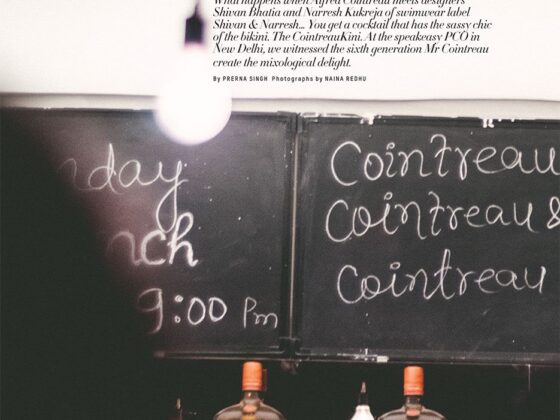 What happens when Alfred Cointreau meets designers
Shivan Bhatia and Narresh Kukreja of swimwear label
Shivan & Narresh... You get a cocktail that has the sassy chic
of the bikini. The CointreauKini. At the speakeasy PCO in
New Delhi, we witnessed the sixth generation Mr Cointreau
create the mixological delight.
By PRERNA SINGH Photographs by NAINA REDHU
nday
nch
9:00 Pm
Cointreau
Cointreau &
Cointreau